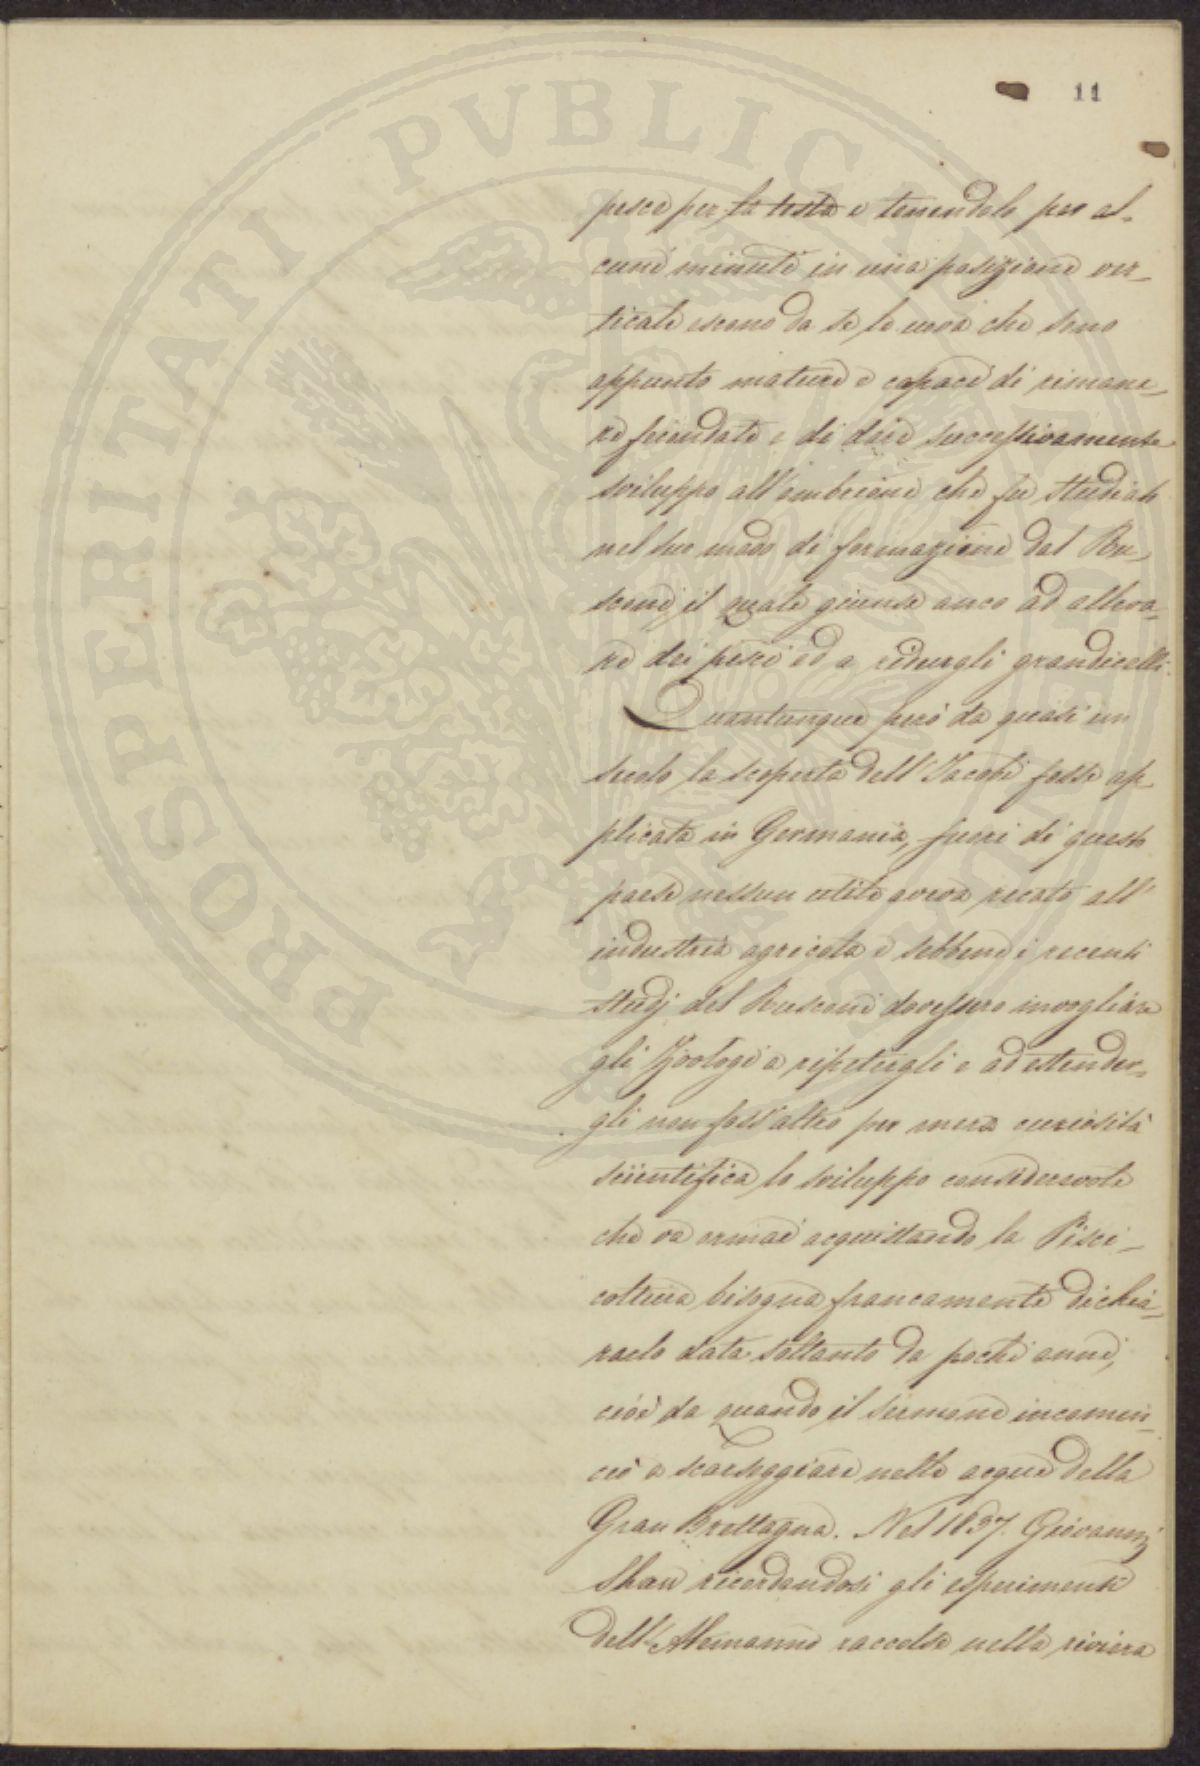 PROSPERITATI PVBLICAE AVGENDAE
11
pesce per la testa e tenendolo per al-
cuni minuti in una posizione ver-
ticale escono da se le uova che sono
appunto mature e capaci di rimane-
re fecondate e di dare successivamente
sviluppo all'embrione che fu studiato
nel suo modo di formazione dal Ru-
sconi il quale giunse anco ad alleva-
re dei pesci ed a ridurgli grandicelli.
Quantunque però da quasi un
secolo la scoperta dell'Jacobi fosse ap-
plicata in Germania, fuori di questo
paese nessun utile aveva recato all'
industria agricola e sebbene i recenti
studj del Rusconi dovessero invogliare
gli Zoologi a ripetergli e ad estender-
gli non foss'altro per mera curiosità
scientifica lo sviluppo considerevole
che va ormai acquistando la Pisci-
coltura bisogna francamente dichia-
rarlo data soltanto da pochi anni,
cioè da quando il sermone incomin-
ciò a scarseggiare nelle acque della
Gran Brettagna. Nel 1837. Giovanni
Shaw ricordandosi gli esperimenti
dell'Alemanno raccolse nella riviera